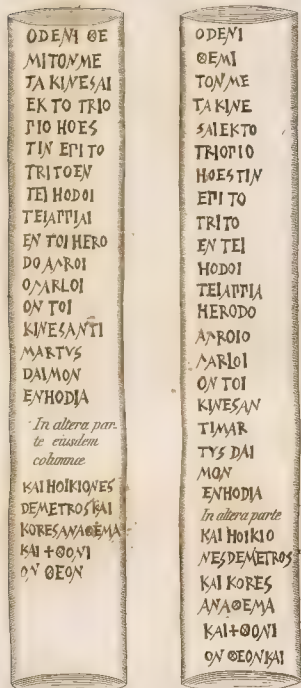 ODENI ΘE
MITONME
TA KINESAI
EK TO TRIO
ΠIO HOES
TIN EΠI TO
TRITOEN
TEI HODOI
TEIAΠΠIAI
EN TOI HERO
DO AΛROI
OΛARLOI
ON TOI
KINESANTI
MARTVS
DAIMON
ENHODIA
In altera par
te eiusdem
columnæ
KAI HOIKIONES
DEMETROS KAI
KORESANAΘEMA
KAI +ΘONI
ON ΘEON
ODENI
ΘEMI
TONME
TA KINE
SAIEKTO
TRIOΠIO
HOES TIN
EΠI TO
TRITO
EN TEI
HODOI
TEIAΠΠIA
HERODO
AΛROIO
ΛARLOI
ON TOI
KINESAN
TIMAR
TYS DAI
MON
ENHODIA
In altera parte
KAI HOIKIO
NESDEMETROS
KAI KORES
ANAΘEMA
KAI+ΘONI
ON ΘEONKAI